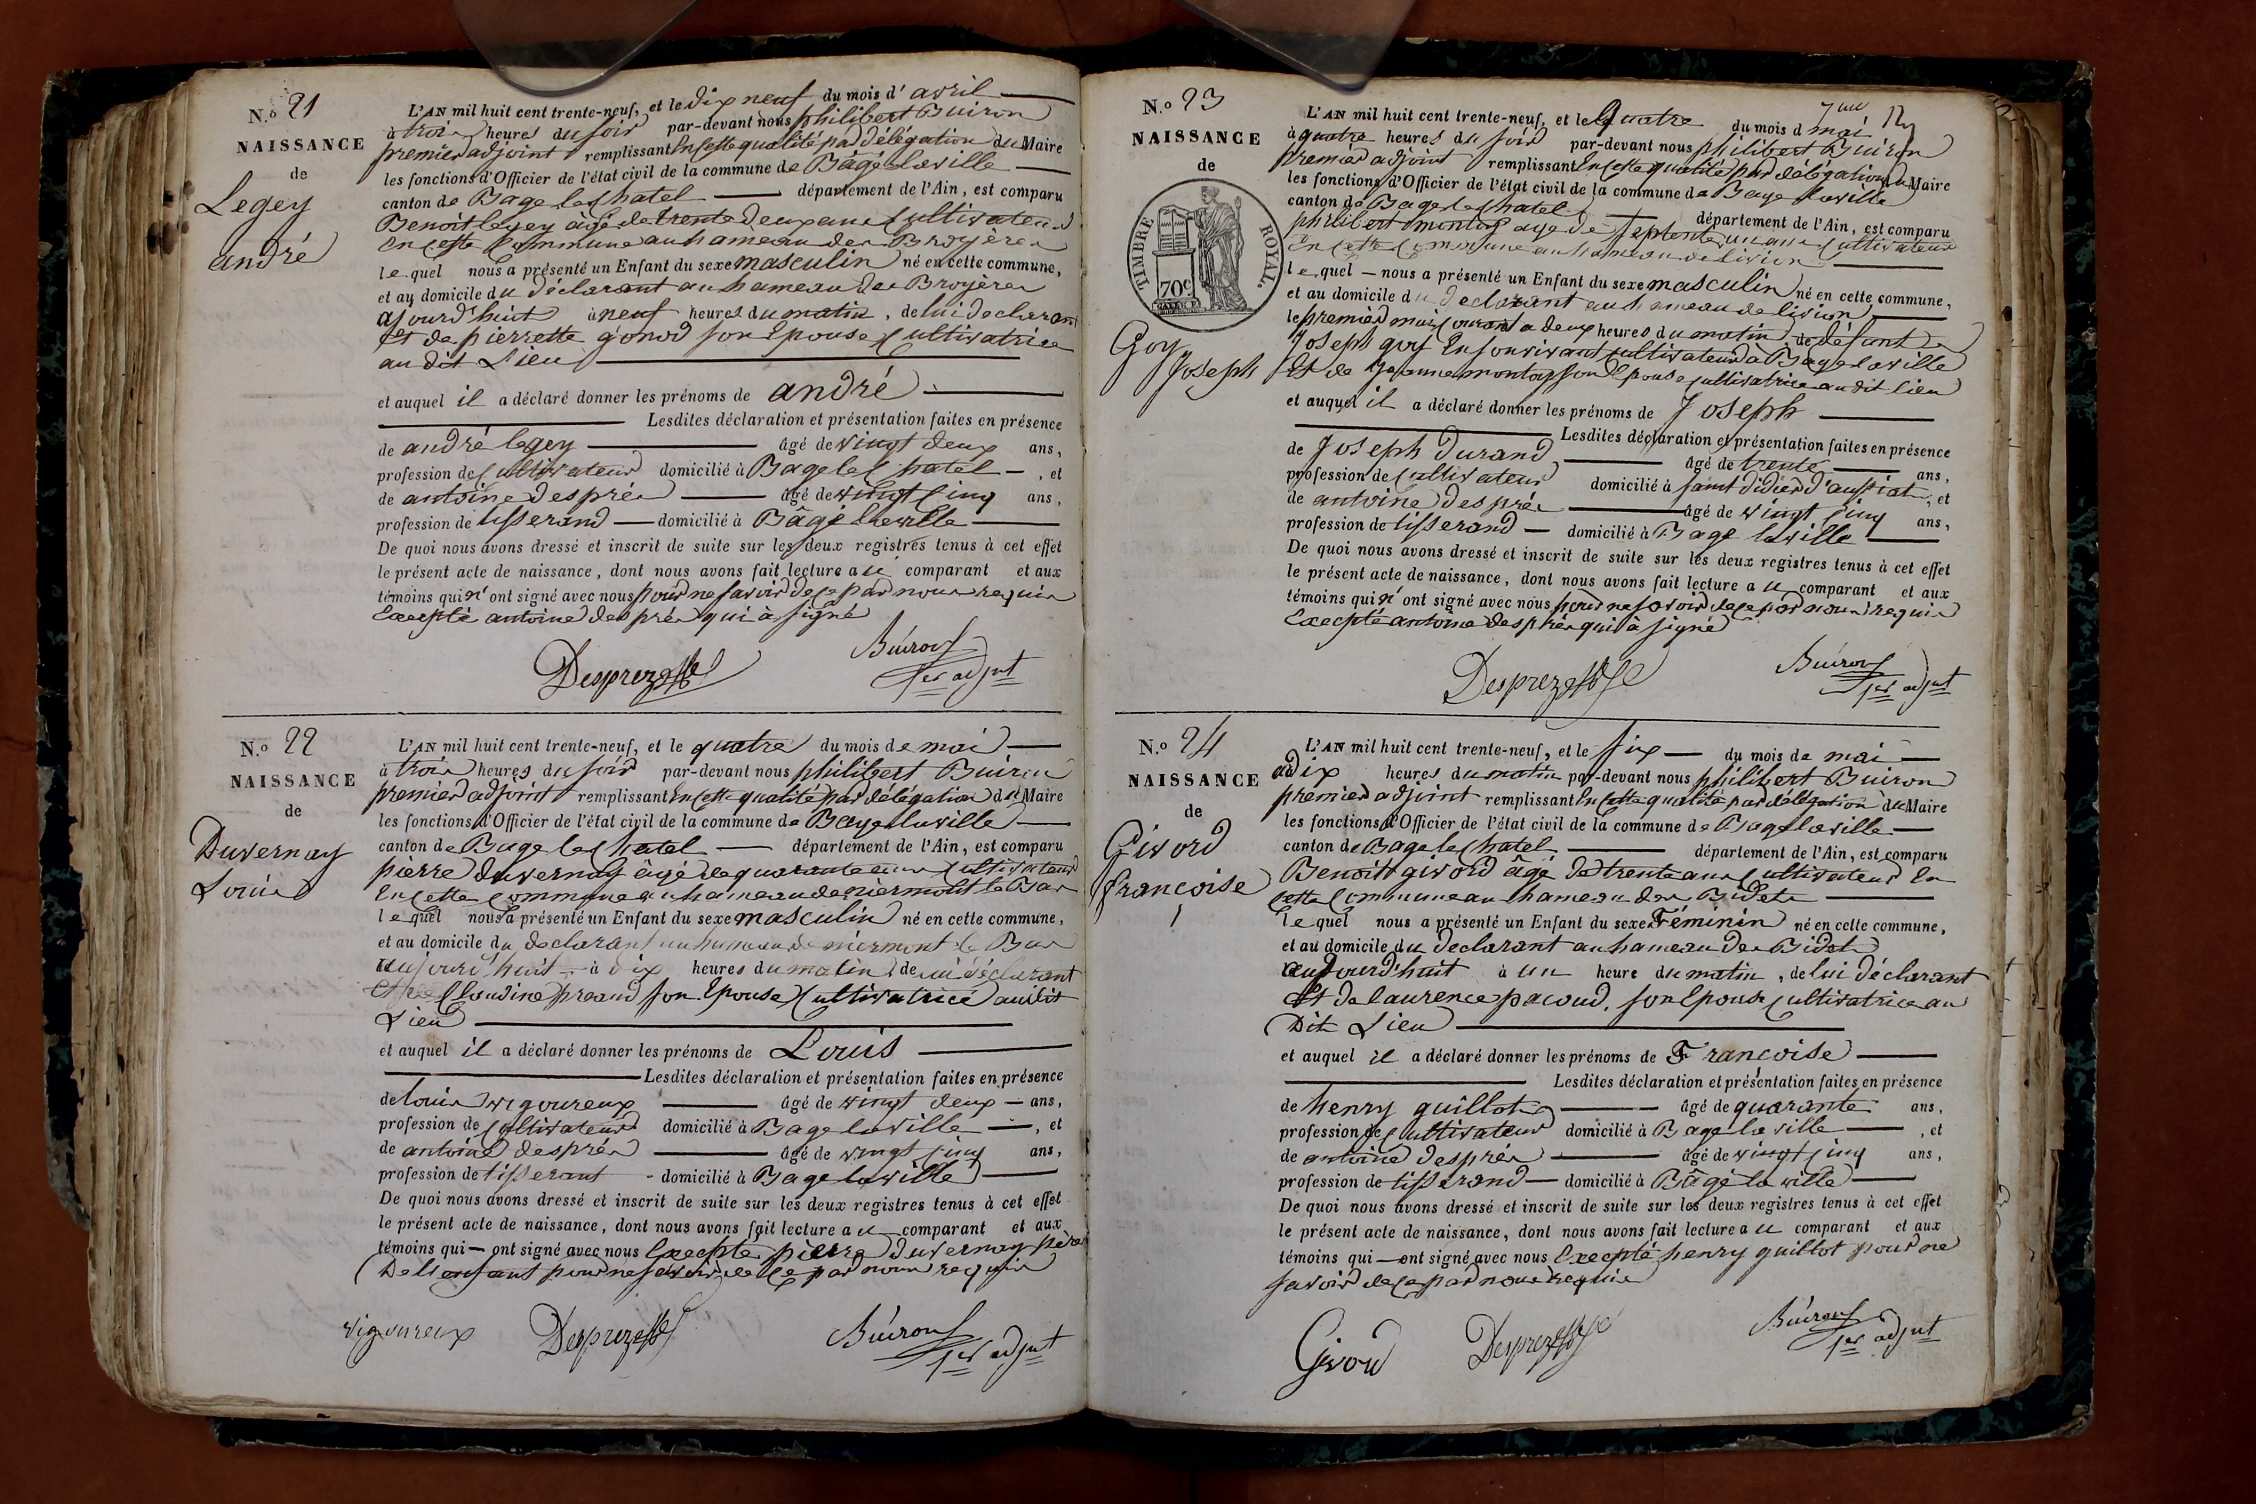 N.o 21
NAISSANCE
de
Legey
andré
L'AN mil huit cent trente-neuf, et le dix neuf du mois d'avril
à trois heures du soir par-devant nous philibert Buiron
premier adjoint remplissant En cette qualité par délégation du Maire
les fonctions d'Officier de l'état civil de la commune de Bâgé laville
canton de Bage le Chatel département de l'Ain, est comparu
Benoit legey âgé de trente deux ans Cultivateur
En cette Commune au hameau des Broyères
lequel nous a présenté un Enfant du sexe masculin né en cette commune,
et au domicile du déclarant au hameau des Broyères
ajourd'huit à neuf heures du matin, de lui declarant
et de pierrette gonod son Epouse Cultivatrice
au dit Lieu
et auquel il a déclaré donner les prénoms de andré
Lesdites déclaration et présentation faites en présence
de andré legey âgé de vingt deux ans,
profession de Cultivateur domicilié à Bage le Chatel, et
de antoine després âgé de vingt Cinq ans,
profession de tisserand domicilié à Bâgé laville
De quoi nous avons dressé et inscrit de suite sur les deux registres tenus à cet effet
le présent acte de naissance, dont nous avons fait lecture au comparant et aux
témoins qui n'ont signé avec nous pour ne savoir de ce par nous requis
Excepté antoine després qui à signé
Buiron
1er adjnt
N.o 22
NAISSANCE
de
Duvernay
Louis
L'AN mil huit cent trente-neuf, et le quatre du mois de mai
à trois heures du soir par-devant nous philibert Buiron
premier adjoint remplissant En cette qualité par délégation du Maire
les fonctions d'Officier de l'état civil de la commune de Bage laville
canton de Bage le Chatel département de l'Ain, est comparu
pierre duvernay âgé de quarante ans Cultivateur
En cette Commune au hameau de niermont le Bas
lequel nous a présenté un Enfant du sexe masculin né en cette commune,
et au domicile du declarant au hameau de niermont le Bas
aujourd'huit à dix heures du matin, de lui déclarant
Claudine son Epouse Cultivatrice audit
Lieu
et auquel il a déclaré donner les prénoms de Louis
Lesdites déclaration et présentation faites en présence
de louis vigoureux âgé de vingt deux ans,
profession de Cultivateur domicilié à Bage laville, et
de antoine després âgé de vingt Cinq ans,
profession de tisserant domicilié à Bage laville
De quoi nous avons dressé et inscrit de suite sur les deux registres tenus à cet effet
le présent acte de naissance, dont nous avons fait lecture au comparant et aux
témoins qui ont signé avec nous Excepté pierre duvernay père
De lenfant pour ne savoir de ce par nous requis
vigoureux
Buiron
1er adjnt
N.o 23
NAISSANCE
de
TIMBRE ROYAL.
70c
Goy
Joseph
L'AN mil huit cent trente-neuf, et le Quatre du mois d mai
à quatre heures du soir par-devant nous philibert Buiron
premier adjoint remplissant En cette qualité par délégation du Maire
les fonctions d'Officier de l'état civil de la commune de Bage laville
canton de Bage le Chatel département de l'Ain, est comparu
philibert montoy age de septente un ans Cultivateur
En cette Commune au hameau de livion
lequel nous a présenté un Enfant du sexe masculin né en cette commune,
et au domicile du declarant au hameau de livion
le premier mai Courant a deux heures du matin, de défunt
Joseph goy En son vivant cultivateur à Bage laville
Et de Jeanne montoy son Epouse cultivatrice au dit lieu
et auquel il a déclaré donner les prénoms de Joseph
Lesdites déclaration et présentation faites en présence
de Joseph durand âgé de trente ans,
profession de Cultivateur domicilié à saint didier d'aussiat, et
de antoine després âgé de vingt cinq ans,
profession de tisserand domicilié à Bage laville
De quoi nous avons dressé et inscrit de suite sur les deux registres tenus à cet effet
le présent acte de naissance, dont nous avons fait lecture au comparant et aux
témoins qui n'ont signé avec nous pour ne savoir de ce par nous requis
Excepté antoine després qui à signé
Buiron
1er adjnt
N.o 24
NAISSANCE
de
Givord
françoise
L'AN mil huit cent trente-neuf, et le six du mois de mai
a dix heures du matin par-devant nous philibert Buiron
premier adjoint remplissant En cette qualité par délégation du Maire
les fonctions d'Officier de l'état civil de la commune de Bage laville
canton de Bage le Chatel département de l'Ain, est comparu
Benoit givord âgé de trente ans Cultivateur En
cette Commune au hameau des Bidets
lequel nous a présenté un Enfant du sexe Féminin né en cette commune,
et au domicile du declarant au hameau des Bidets
aujourd'huit à un heure du matin, de lui déclarant
Et de laurence pacoud, son Epouse Cultivatrice au
Dit Lieu
et auquel il a déclaré donner les prénoms de Françoise
Lesdites déclaration et présentation faites en présence
de henry guillot âgé de quarante ans,
profession de Cultivateur domicilié à Bage la ville, et
de antoine després âgé de vingt cinq ans,
profession de tisserand domicilié à Bâgé la ville
De quoi nous avons dressé et inscrit de suite sur les deux registres tenus à cet effet
le présent acte de naissance, dont nous avons fait lecture au comparant et aux
témoins qui ont signé avec nous Excepté henry guillot pour ne
savoir de ce par nous requis
Givord
Buiron
1er adjnt